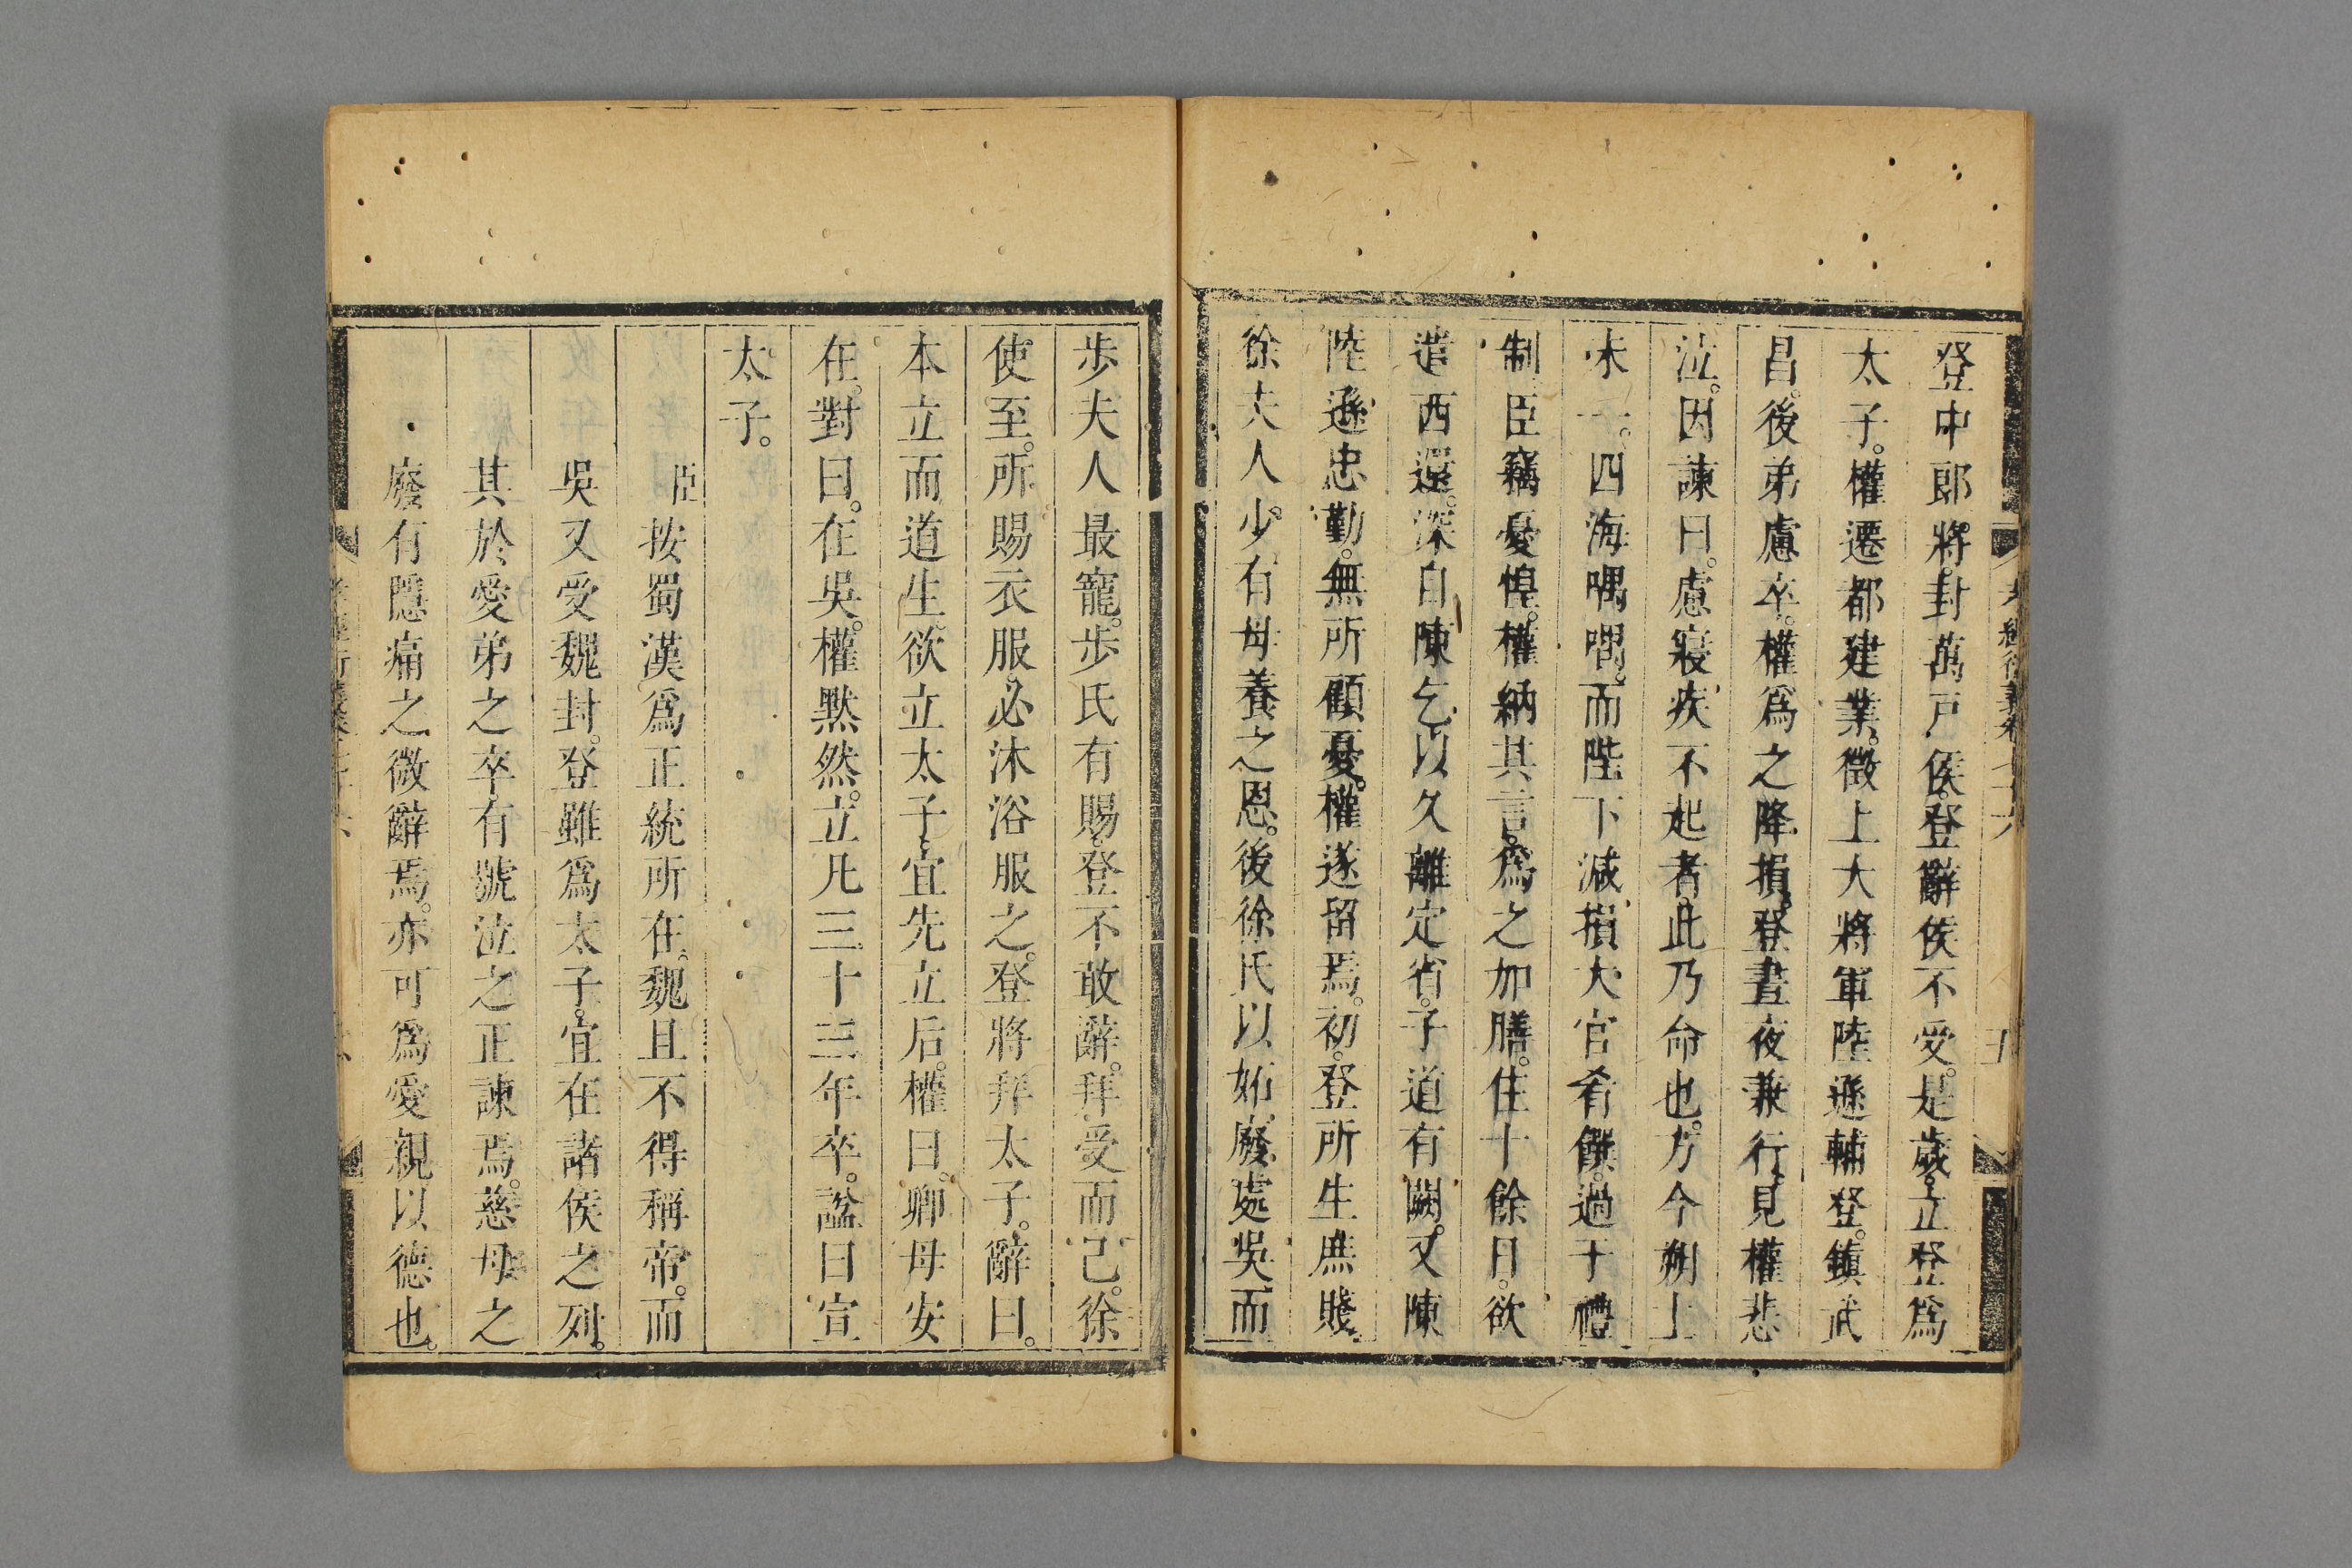 登中郎將。封萬戸侯。登辭侯不受。是歲。立登爲
太子。權遷都建業。徵上大將軍陸遜輔登。鎮武
昌。後弟慮卒。權爲之降損。登晝夜兼行。見權悲
泣。因諫曰。慮寢疾不起者。此乃命也。方今朔土
未一。四海喁喁。而陛下減損大官肴饌。過于禮
制。臣竊憂惶。權納其言。爲之加膳。住十餘日。欲
遣西還。深自陳乞。以久離定省。子道有闕。又陳
陸遜忠勤。無所顧憂。權遂留焉。初。登所生庶賤。
徐夫人少有母養之恩。後徐氏以妬廢處吳。而
步夫人最寵。步氏有賜。登不敢辭。拜受而己。徐
使至。所賜衣服。必沐浴服之。登將拜太子。辭曰。
本立而道生。欲立太子。宜先立后。權曰。卿母安
在。對曰。在吳。權黙然。立凡三十三年卒。諡曰宣
太子。
臣按蜀漢爲正統所在。魏且不得稱帝。而
吳又受魏封。登雖爲太子。宜在諸侯之列。
其於愛弟之卒。有號泣之正諫焉。慈母之
廢有隱痛之微辭焉。亦可爲愛親以德也。